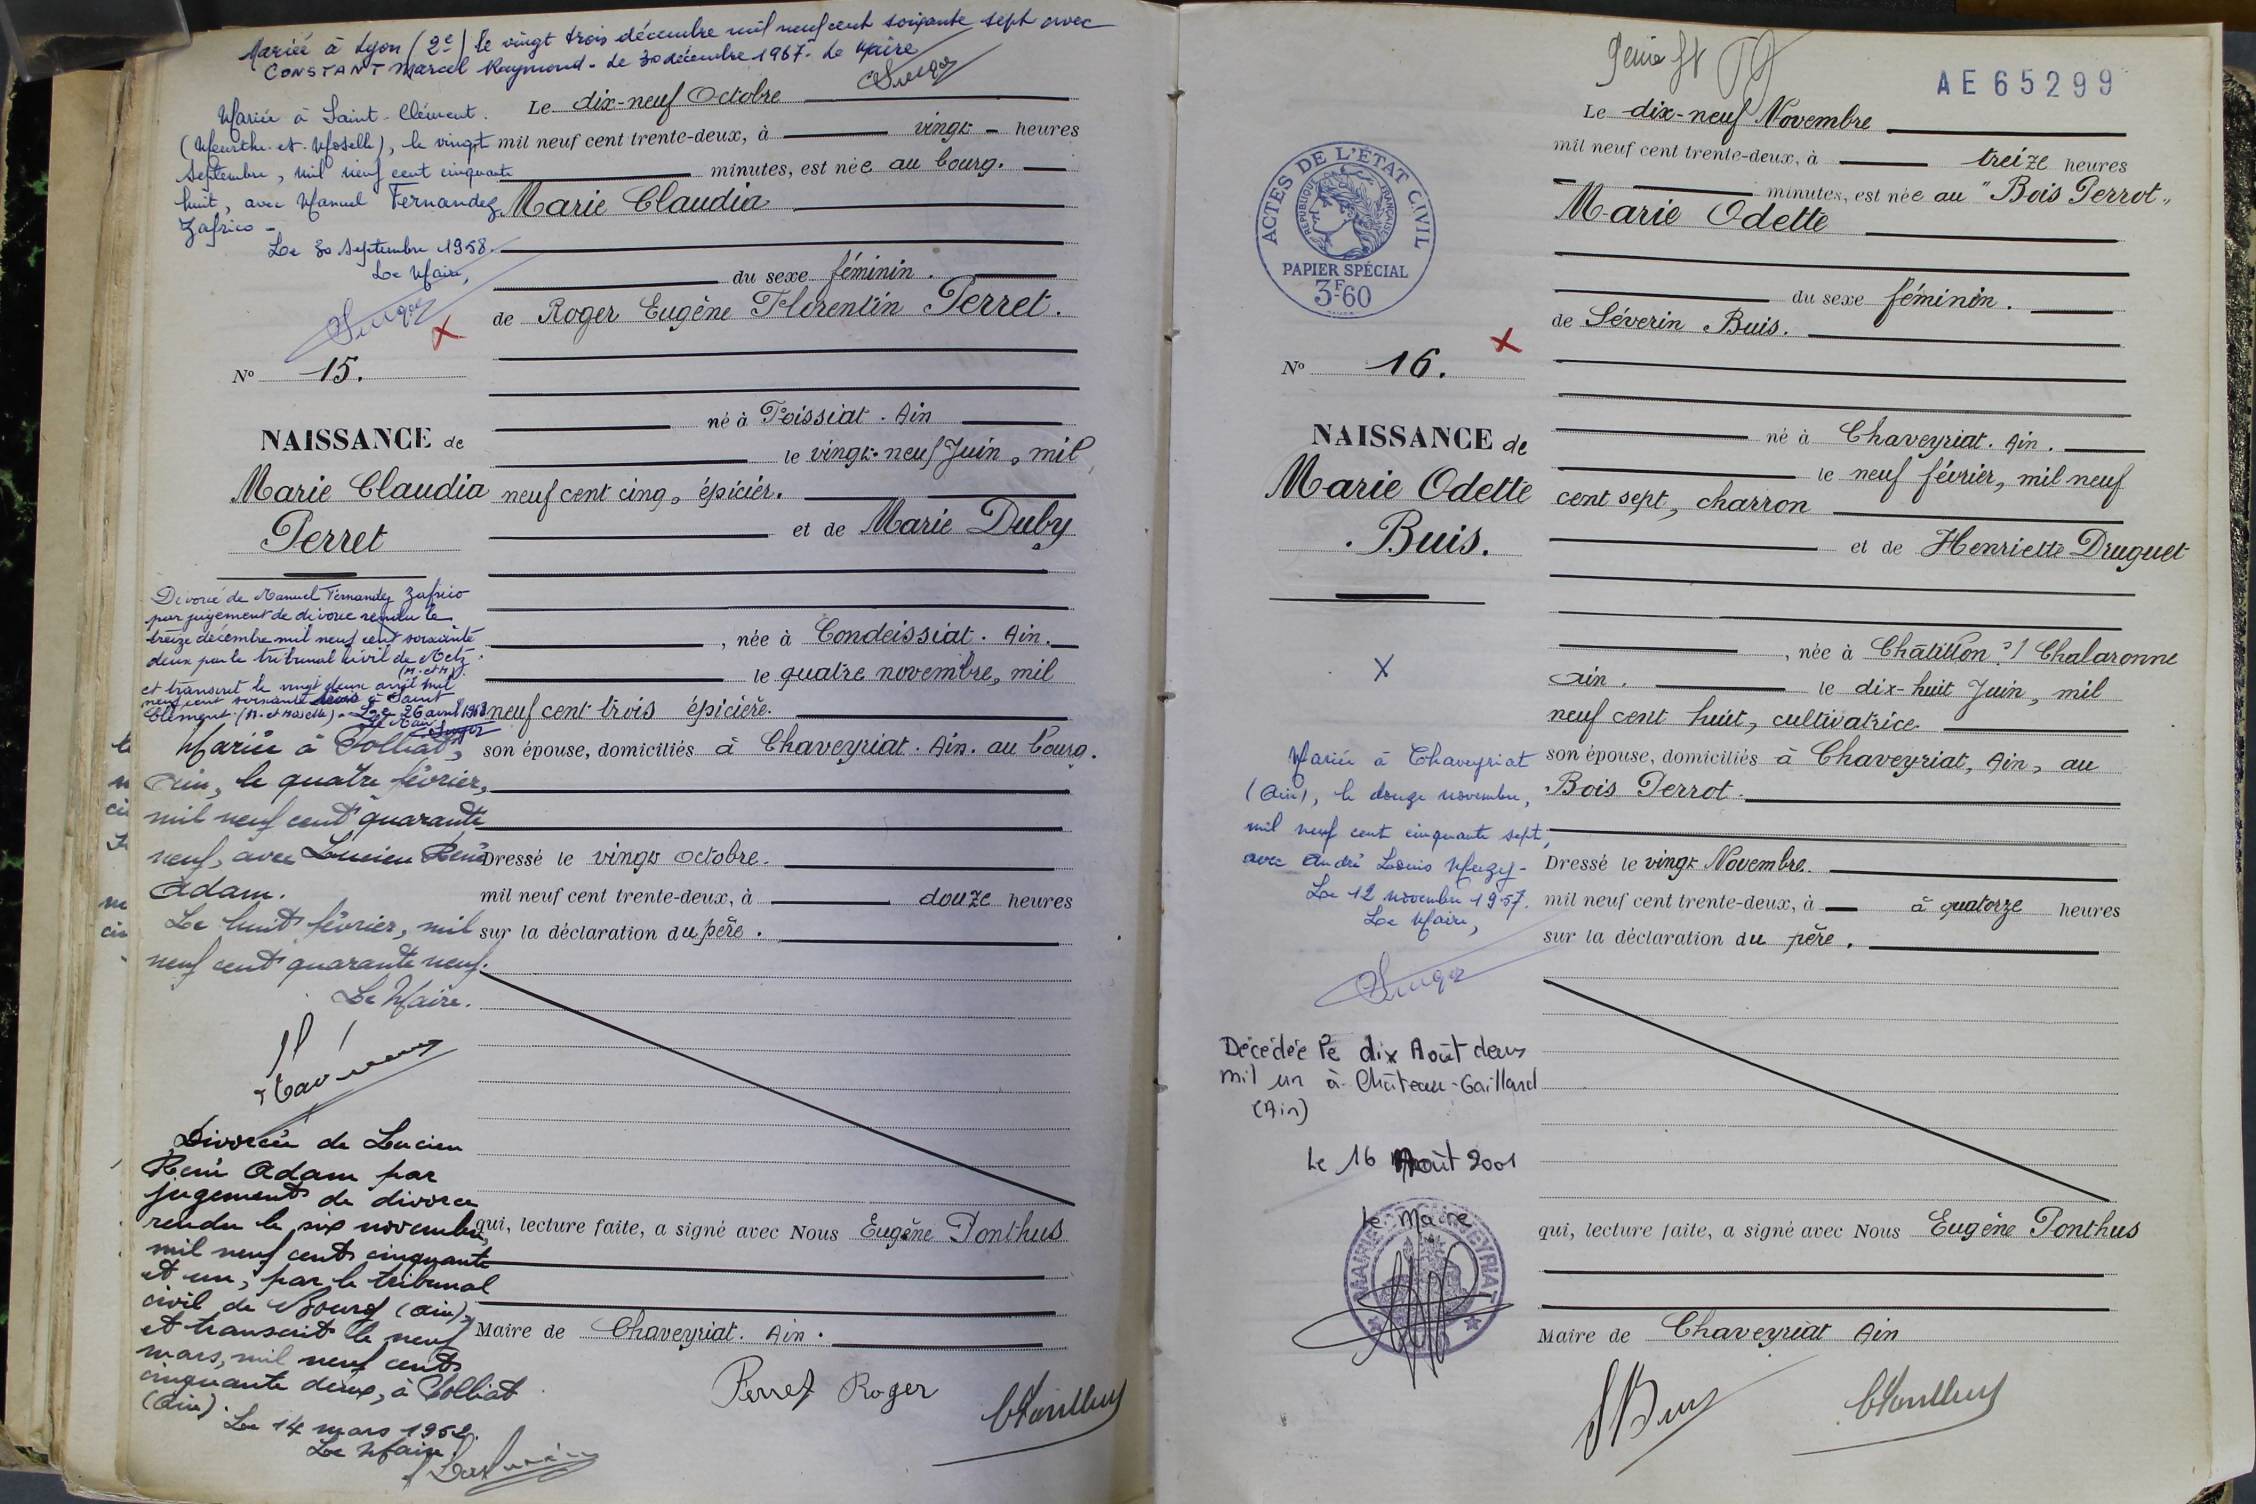 Mariée à Lyon (2e) le vingt trois décembre mil neuf cent soixante sept avec
CONSTANT Marcel Raymond - le 30 décembre 1967 - Le Maire
Mariée à Saint-Clément.
(Meurthe-et-Moselle), le vingt
septembre, mil neuf cent cinquante
huit, avec Manuel Fernandez
Zafrico -
Le 30 septembre 1958.
Le Maire,
No 15.
NAISSANCE de
Marie Claudia
Perret
Divorcée de Manuel Fernandez Zafrico
par jugement de divorce rendu le
treize décembre mil neuf cent soixante
deux par le tribunal civil de Metz
et transcrit le vingt deux avril mil
neuf cent soixante à Saint
Clément (M. et Moselle) - Le 26 avril
Le Maire
Mariée à Polliat,
Ain, le quatre février,
mil neuf cent quarante
neuf, avec Lucien René
Adam.
Le huit février, mil
neuf cent quarante neuf.
Le Maire.
Divorcée de Lucien
René Adam par
jugement de divorce
rendu le six novembre,
mil neuf cent cinquante
et un, par le tribunal
civil de Bourg (Ain),
et transcrit le neuf
mars, mil neuf cent
cinquante deux, à Polliat
(Ain).
Le 14 mars 1952.
Le Maire
Le dix-neuf Octobre
mil neuf cent trente-deux, à vingt - heures
minutes, est née au bourg.
Marie Claudia
du sexe féminin.
de Roger Eugène Florentin Perret.
né à Foissiat . Ain
le vingt-neuf Juin, mil
neuf cent cinq, épicier.
et de Marie Duby
, née à Condeissiat . Ain.
le quatre novembre, mil
neuf cent trois épicière.
son épouse, domiciliés à Chaveyriat . Ain. au bourg.
Dressé le vingt octobre.
mil neuf cent trente-deux, à douze heures
sur la déclaration du père .
qui, lecture faite, a signé avec Nous Eugène Ponthus
Maire de Chaveyriat. Ain .
Perret Roger
EPonthus
AE65299
ACTES DE L'ÉTAT CIVIL
RÉPUBLIQUE FRANÇAISE
PAPIER SPÉCIAL
3F60
No 16.
NAISSANCE de
Marie Odette
Buis.
Mariée à Chaveyriat
(Ain), le douze novembre,
mil neuf cent cinquante sept,
avec André Louis Muzy -
Le 12 novembre 1957.
Le Maire,
Décédée le dix Août deux
mil un à Château-Gaillard
(Ain)
Le 16 Août 2001
Le Maire
MAIRIE DE CHAVEYRIAT
Le dix-neuf Novembre
mil neuf cent trente-deux, à treize heures
minutes, est née au "Bois Perrot"
Marie Odette
du sexe féminin.
de Séverin Buis.
né à Chaveyriat. Ain.
le neuf février, mil neuf
cent sept, charron
et de Henriette Druguet
, née à Châtillon s/ Chalaronne
Ain. le dix-huit Juin, mil
neuf cent huit, cultivatrice.
son épouse, domiciliés à Chaveyriat, Ain, au
Bois Perrot.
Dressé le vingt Novembre.
mil neuf cent trente-deux, à à quatorze heures
sur la déclaration du père .
qui, lecture faite, a signé avec Nous Eugène Ponthus
Maire de Chaveyriat Ain
SBuis
EPonthus